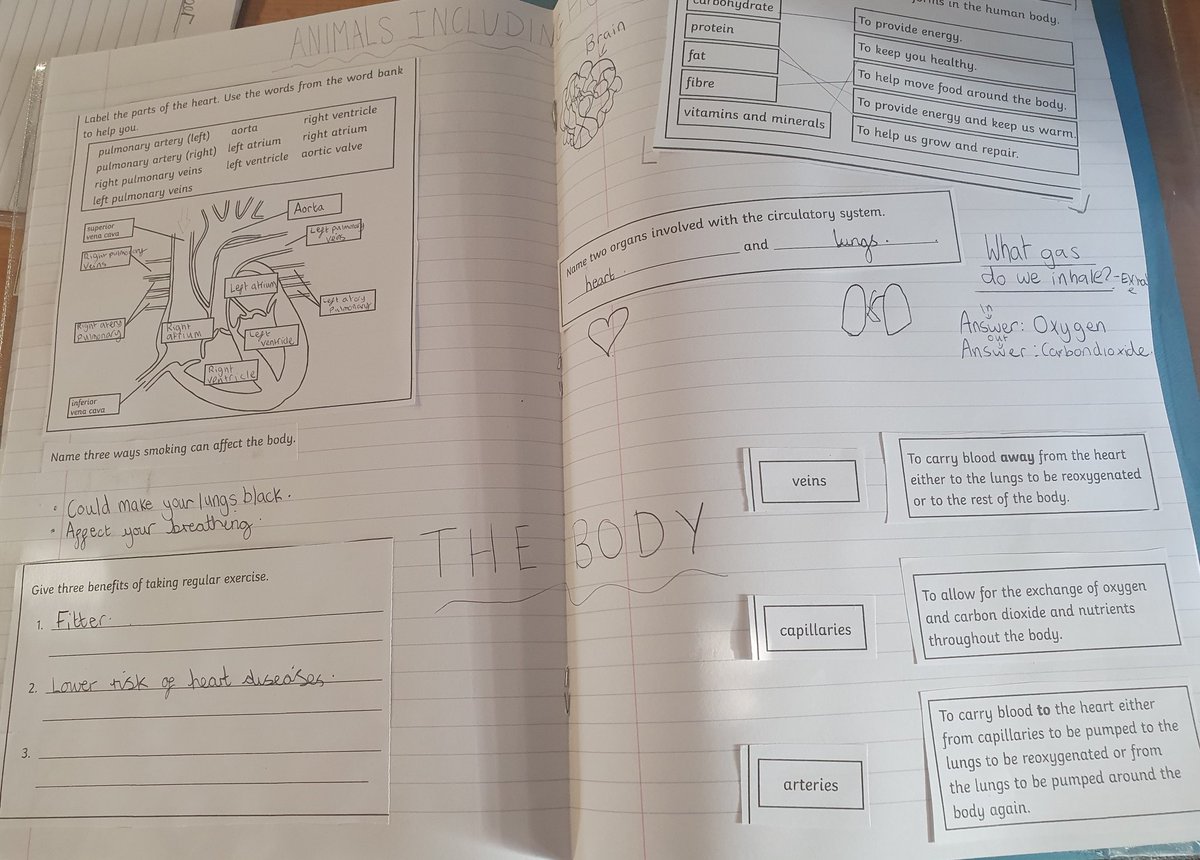 ANIMALS INCLUDIN
Label the parts of the heart. Use the words from the word bank
to help you.
pulmonary artery (left) aorta right ventricle
pulmonary artery (right) left atrium right atrium
right pulmonary veins left ventricle aortic valve
left pulmonary veins
superior
vena cava
Aorta
Left pulmonary
veins
Right pulmonary
veins
Left atrium
Left atery
pulmonary
Right atery
pulmonary
Right
atrium
Left
ventricle
Right
ventricle
inferior
vena cava
Name three ways smoking can affect the body.
• Could make your lungs black.
• Affect your breathing.
Give three benefits of taking regular exercise.
1. Fitter.
2. Lower risk of heart diseases.
3.
THE BODY
Brain
in the human body.
carbohydrate
protein
fat
fibre
vitamins and minerals
To provide energy.
To keep you healthy.
To help move food around the body.
To provide energy and keep us warm.
To help us grow and repair.
Name two organs involved with the circulatory system.
heart and lungs.
What gas
do we inhale? - Extra
in
Answer: Oxygen
out
Answer: Carbondioxide.
veins
To carry blood away from the heart
either to the lungs to be reoxygenated
or to the rest of the body.
capillaries
To allow for the exchange of oxygen
and carbon dioxide and nutrients
throughout the body.
arteries
To carry blood to the heart either
from capillaries to be pumped to the
lungs to be reoxygenated or from
the lungs to be pumped around the
body again.